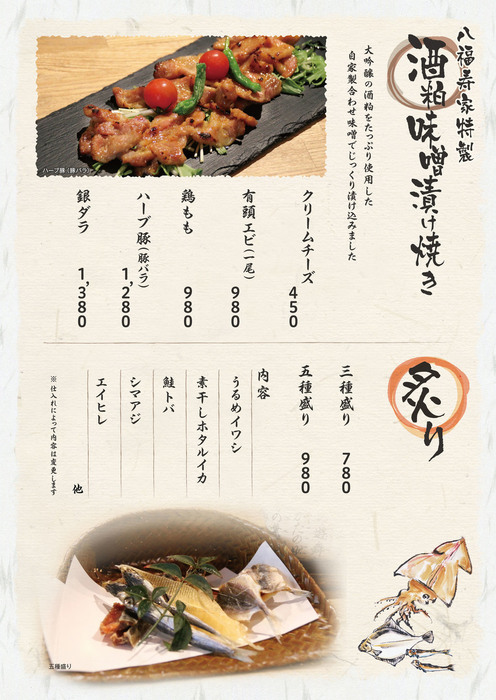 八福寿家特製
酒粕味噌漬け焼き
大吟醸の酒粕をたっぷり使用した
自家製合わせ味噌でじっくり漬け込みました
ハーブ豚(豚バラ)
クリームチーズ 450
有頭エビ(一尾) 980
鶏もも 980
ハーブ豚(豚バラ) 1,280
銀ダラ 1,380
炙り
三種盛り 780
五種盛り 980
内容
うるめイワシ
素干しホタルイカ
鮭トバ
シマアジ
エイヒレ
他
※仕入れによって内容は変更します
五種盛り